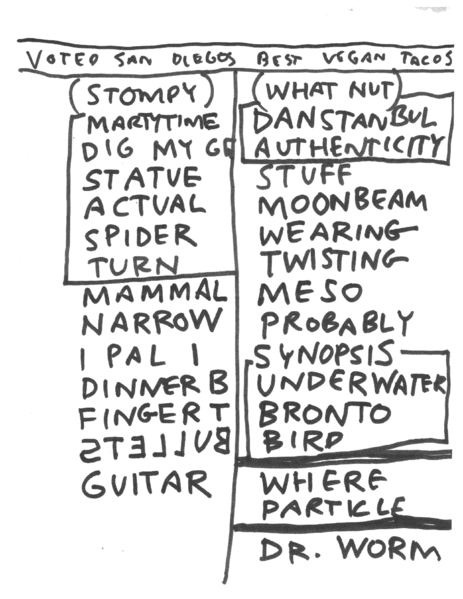 VOTED SAN DIEGOS BEST VEGAN TACOS
(STOMPY)
MARTYTIME
DIG MY GR
STATUE
ACTUAL
SPIDER
TURN
MAMMAL
NARROW
I PAL I
DINNER B
FINGER T
BULLETS
GUITAR
(WHAT NUT)
DANSTANBUL
AUTHENTICITY
STUFF
MOONBEAM
WEARING
TWISTING
MESO
PROBABLY
SYNOPSIS
UNDERWATER
BRONTO
BIRD
WHERE
PARTICLE
DR. WORM